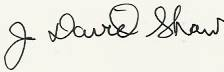 J David Shaw